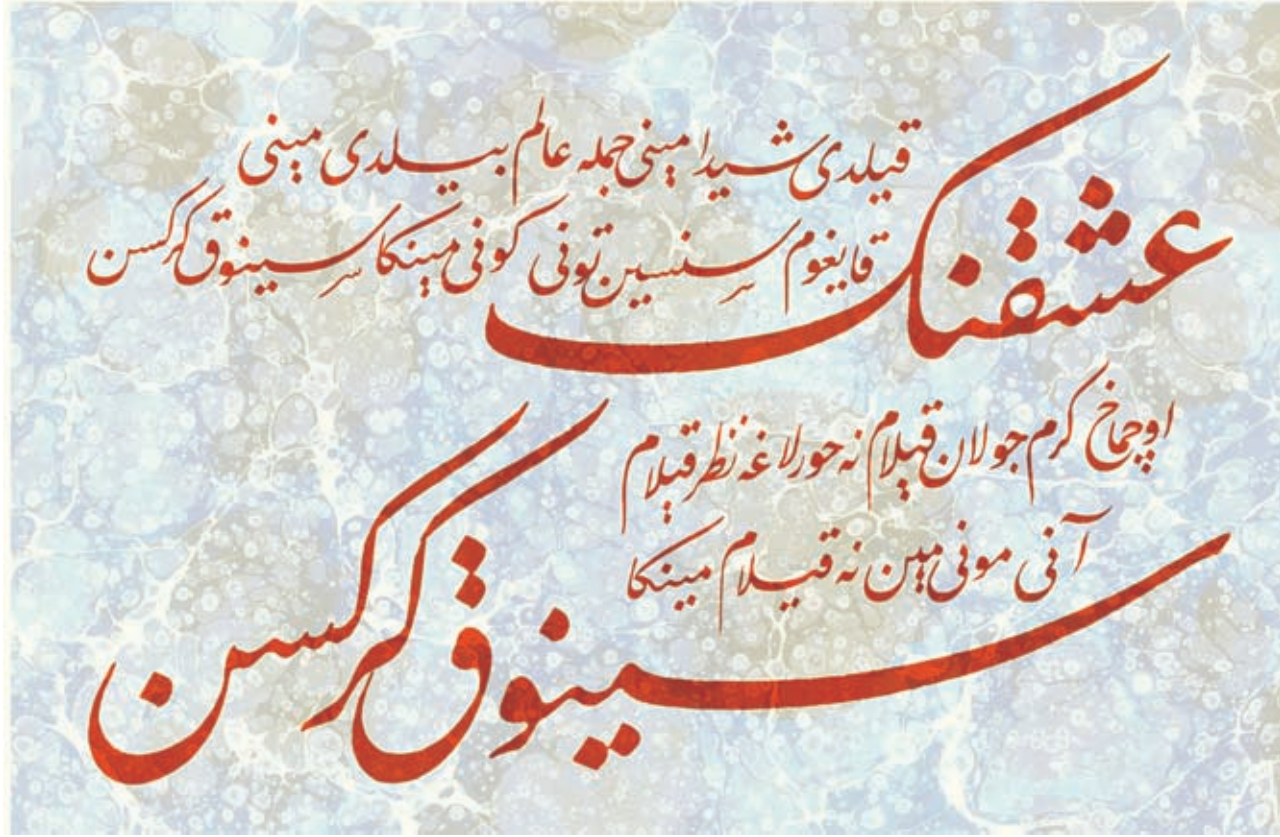 عشقنك
قیلدی شیدا مینی جمله عالم بیلدی مینی
قایغوم سنسین تونی كونی مینكا سینوق كركسن
اوچماخ كرم جولان قیلام نه حورلاغه نظر قیلام
آنی مونی مین نه قیلام مینكا
سینوق كركسن